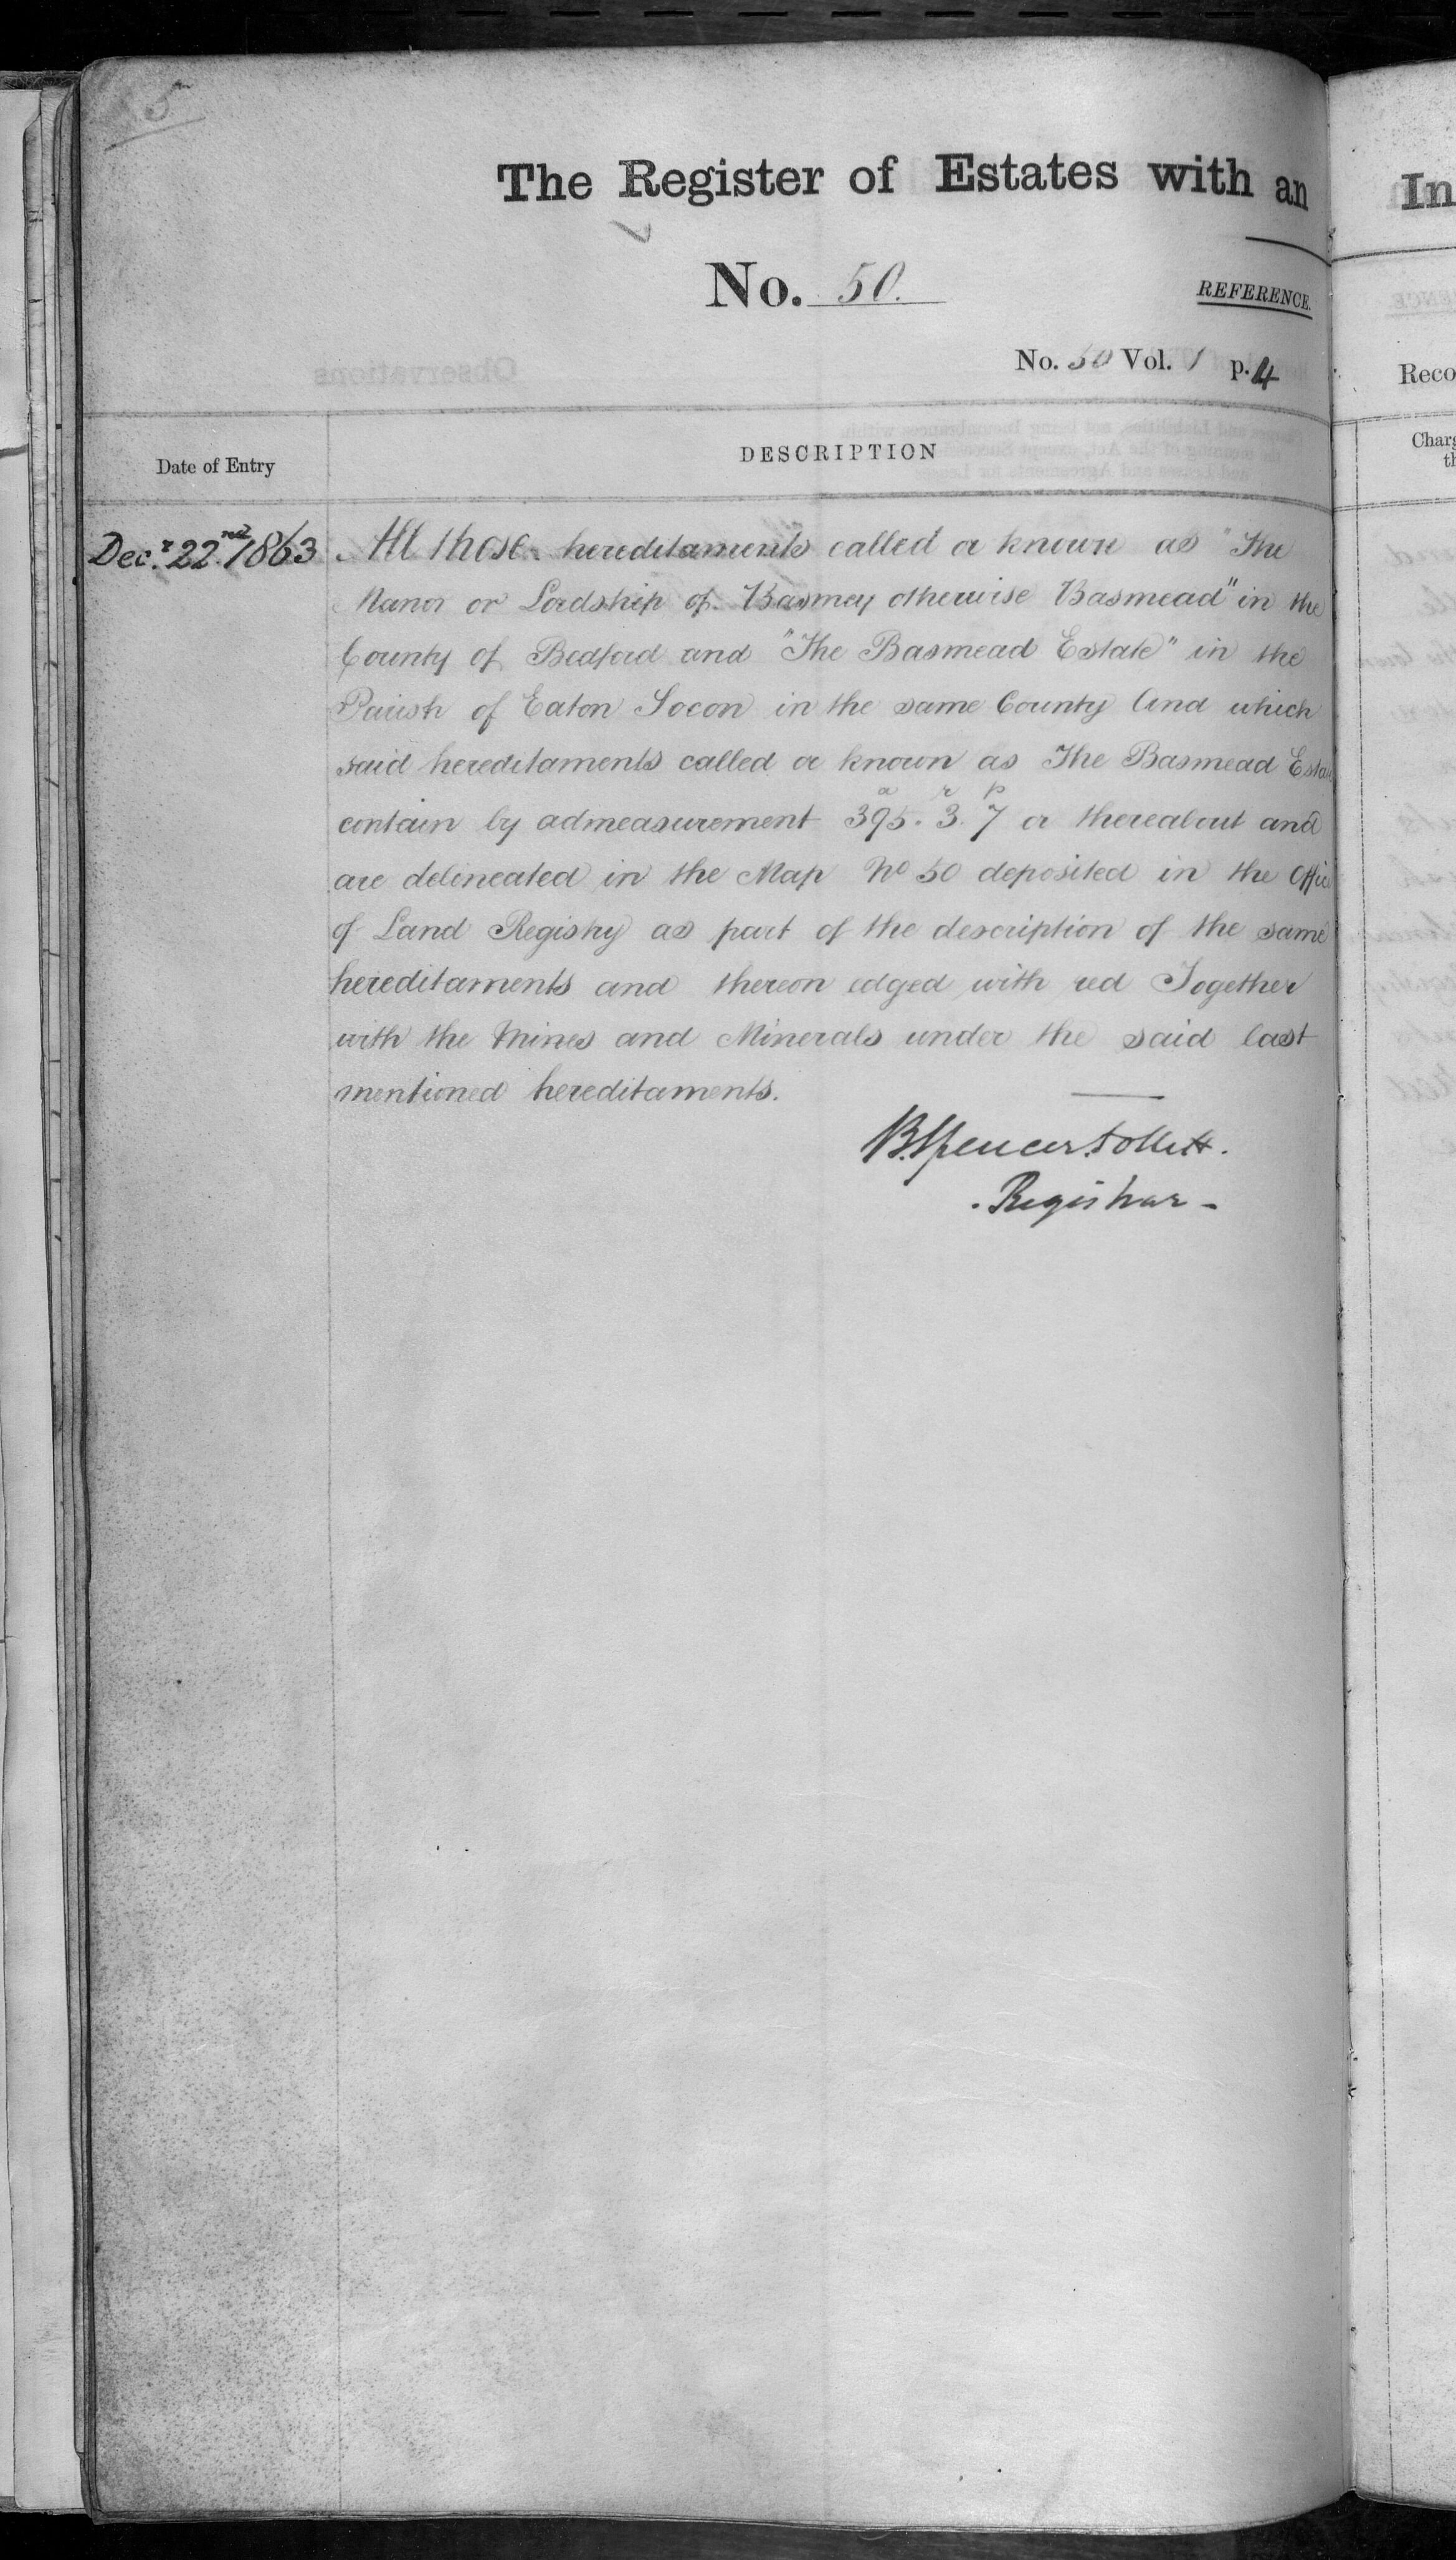 5
The Register of Estates with an
No. 50.
REFERENCE.
No. 50 Vol. 1 p. 4
Date of Entry
DESCRIPTION
Decr. 22nd 1863
All those hereditaments called or known as "The
Manor or Lordship of Basmey otherwise Basmead" in the
County of Bedford and "The Basmead Estate" in the
Parish of Eaton Socon in the same County And which
said hereditaments called or known as The Basmead Estate
a r p
contain by admeasurement 395. 3. 7 or thereabout and
are delineated in the Map No 50 deposited in the Office
of Land Registry as part of the description of the same
hereditaments and thereon edged with red Together
with the Mines and Minerals under the said last
mentioned hereditaments.
B. Spencer Follett.
Registrar
In
Reco
Charg
th